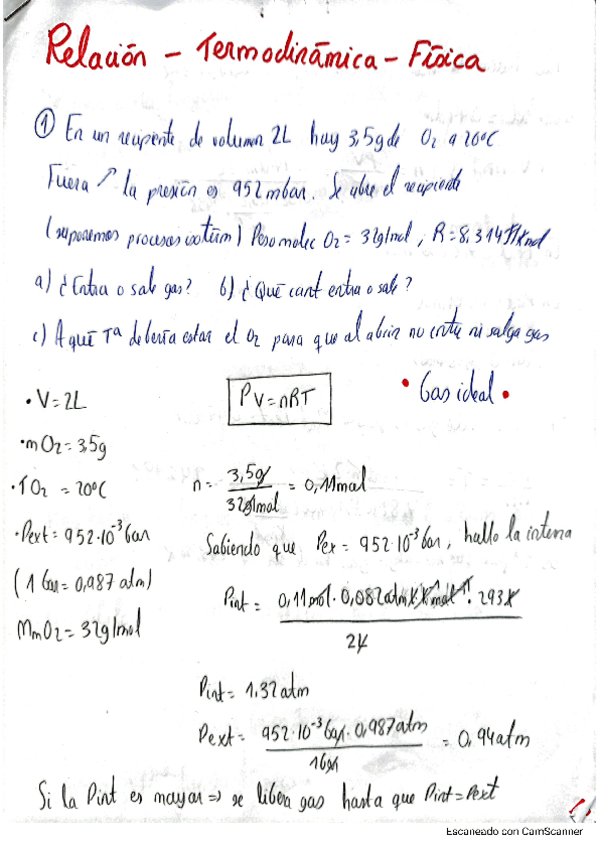 Relación - Termodinámica - Física
① En un recipiente de volumen 2L hay 3,5g de O2 a 20ºC
Fuera ↗ la presión es 952 mbar. Se abre el recipiente
(suponemos procesos isoterm) Peso molec O2 = 32g/mol, R=8,314 J/Kmol
a) ¿Entra o sale gas? b) ¿Qué cant entra o sale?
c) A qué Tª debería estar el O2 para que al abrir no entre ni salga gas
• V=2L
PV=nRT
• Gas ideal •
• mO2=3,5g
• TO2 = 20ºC
n= 3,5g / 32g/mol = 0,11mol
• Pext= 952·10⁻³bar
Sabiendo que Pex = 952·10⁻³bar, hallo la interna
(1 bar=0,987 atm)
Pint = 0,11mol · 0,082atm·L·K⁻¹mol⁻¹ · 293K / 2L
MmO2= 32g/mol
Pint= 1,32atm
Pext= 952·10⁻³bar·0,987atm / 1bar = 0,94atm
Si la Pint es mayor => se libera gas hasta que Pint=Pext
Escaneado con CamScanner